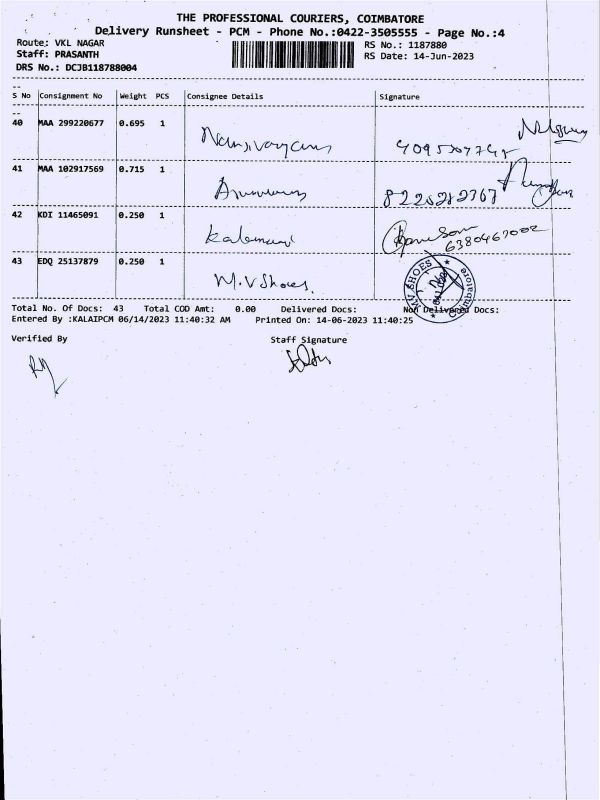 THE PROFESSIONAL COURIERS, COIMBATORE
Delivery Runsheet - PCM - Phone No.:0422-3505555 - Page No.:4
Route: VKL NAGAR
RS No.: 1187880
Staff: PRASANTH
RS Date: 14-Jun-2023
DRS No.: DCJB118788004
S No Consignment No Weight PCS Consignee Details Signature
40 MAA 299220677 0.695 1
41 MAA 102917569 0.715 1 8220282767
42 KDI 11465091 0.250 1 6380467002
43 EDQ 25137879 0.250 1 M.V Shoes.
M.V SHOES Coimbatore
Total No. Of Docs: 43 Total COD Amt: 0.00 Delivered Docs: Non Delivered Docs:
Entered By :KALAIPCM 06/14/2023 11:40:32 AM Printed On: 14-06-2023 11:40:25
Verified By Staff Signature